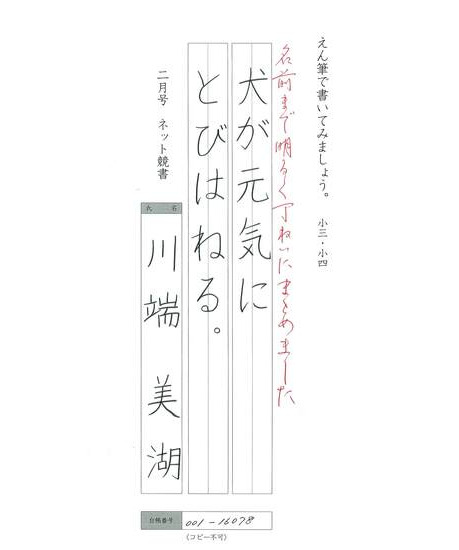 えん筆で書いてみましょう。　小三・小四
名前まで明るく丁ねいにまとめました
犬が元気に
とびはねる。
二月号　ネット競書
氏名
川端　美湖
台帳番号
001-16078
(コピー不可)